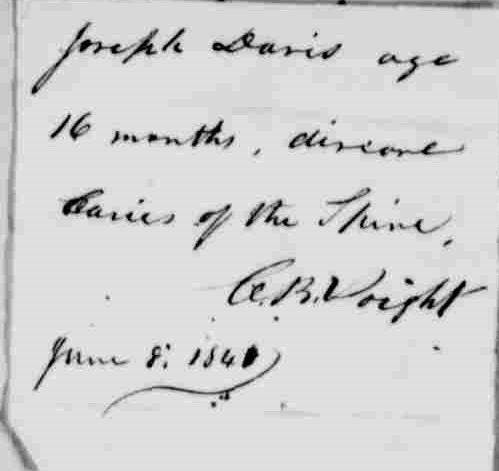 Joseph Davis age
16 months, disease
Caries of the Spine,
C. B. Voight
June 8: 184